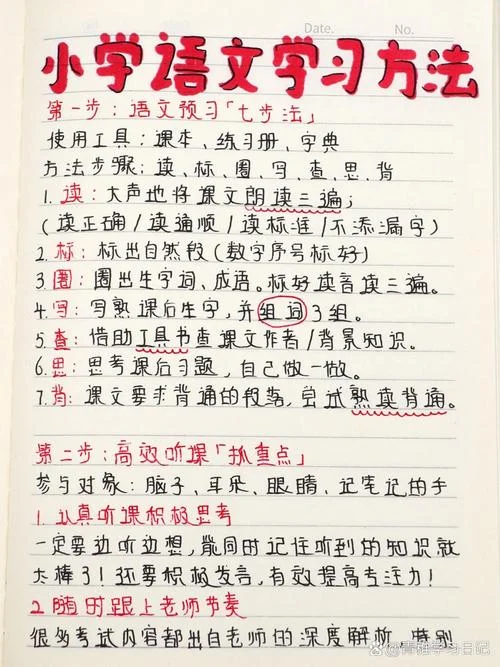 Date. No.
小学语文学习方法
第一步：语文预习「七步法」
使用工具：课本、练习册、字典
方法步骤：读、标、圈、写、查、思、背
1. 读：大声地将课文朗读三遍；
(读正确/读通顺/读标准/不添漏字)
2. 标：标出自然段(数字序号标好)
3. 圈：圈出生字词、成语。标好读音读三遍。
4. 写：写熟课后生字，并组词3组。
5. 查：借助工具书查课文作者/背景知识。
6. 思：思考课后习题，自己做一做。
7. 背：课文要求背诵的段落，尝试熟读背诵。
第二步：高效听课「抓重点」
参与对象：脑子、耳朵、眼睛、记笔记的手
1. 认真听课积极思考
一定要边听边想，能同时记住听到的知识就
太棒了！还要积极发言，有效提高专注力！
2. 随时跟上老师节奏
很多考试内容都出自老师的深度解析，特别
青雉学习日记